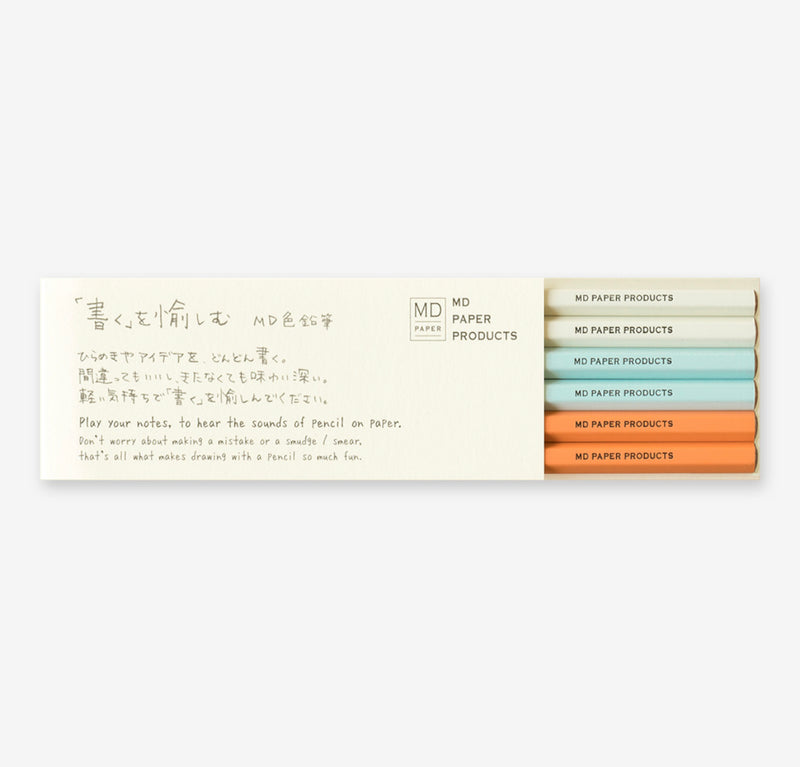 「書く」を愉しむ MD色鉛筆
ひらめきやアイデアを、どんどん書く。
間違ってもいいし、きたなくても味わい深い。
軽い気持ちで「書く」を愉しんでください。
Play your notes, to hear the sounds of pencil on paper.
Don't worry about making a mistake or a smudge / smear,
that's all what makes drawing with a pencil so much fun.
MD
PAPER
MD
PAPER
PRODUCTS
MD PAPER PRODUCTS
MD PAPER PRODUCTS
MD PAPER PRODUCTS
MD PAPER PRODUCTS
MD PAPER PRODUCTS
MD PAPER PRODUCTS